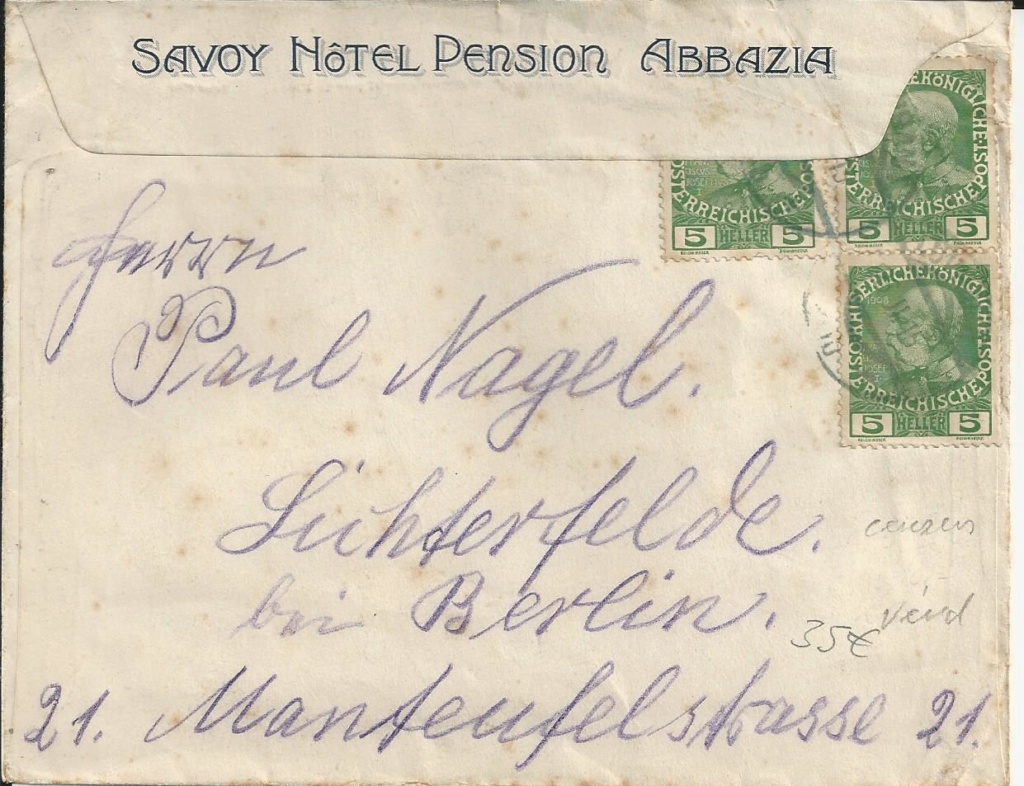 SAVOY HÔTEL PENSION ABBAZIA
Herrn
Paul Nagel.
Lichterfelde.
bei Berlin.
21. Manteufelstrasse 21.
35€
ÖSTERREICHISCHE POST
5 HELLER 5
KAISERLICHE KÖNIGLICHE ÖSTERREICHISCHE POST
5 HELLER 5
KAISERLICHE KÖNIGLICHE ÖSTERREICHISCHE POST
1908
5 HELLER 5